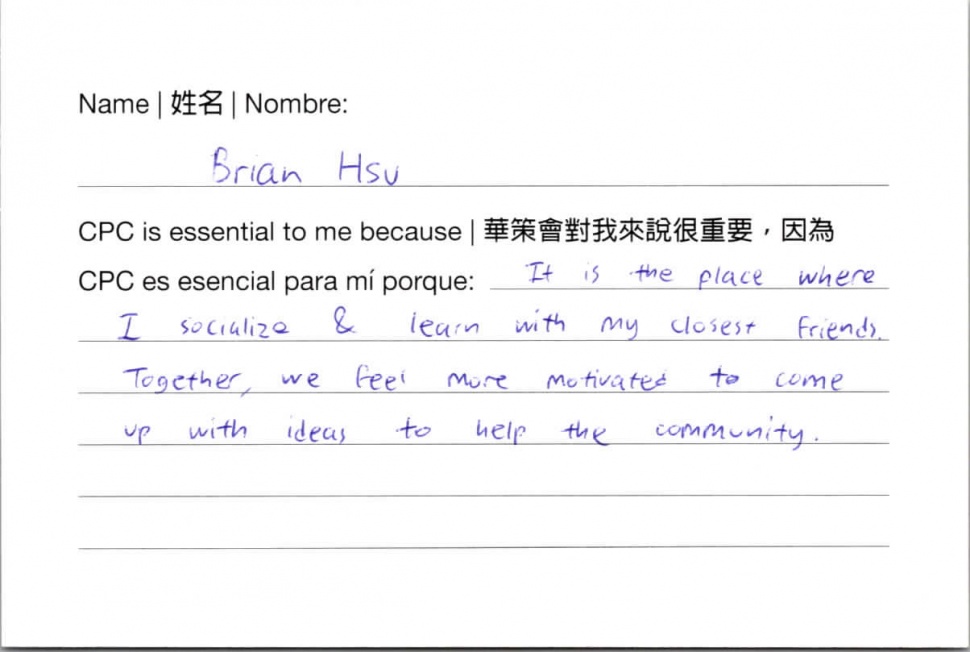 Name | 姓名 | Nombre:
Brian Hsu
CPC is essential to me because | 華策會對我來說很重要，因為
CPC es esencial para mí porque: It is the place where
I socialize & learn with my closest friends.
Together, we feel more motivated to come
up with ideas to help the community.